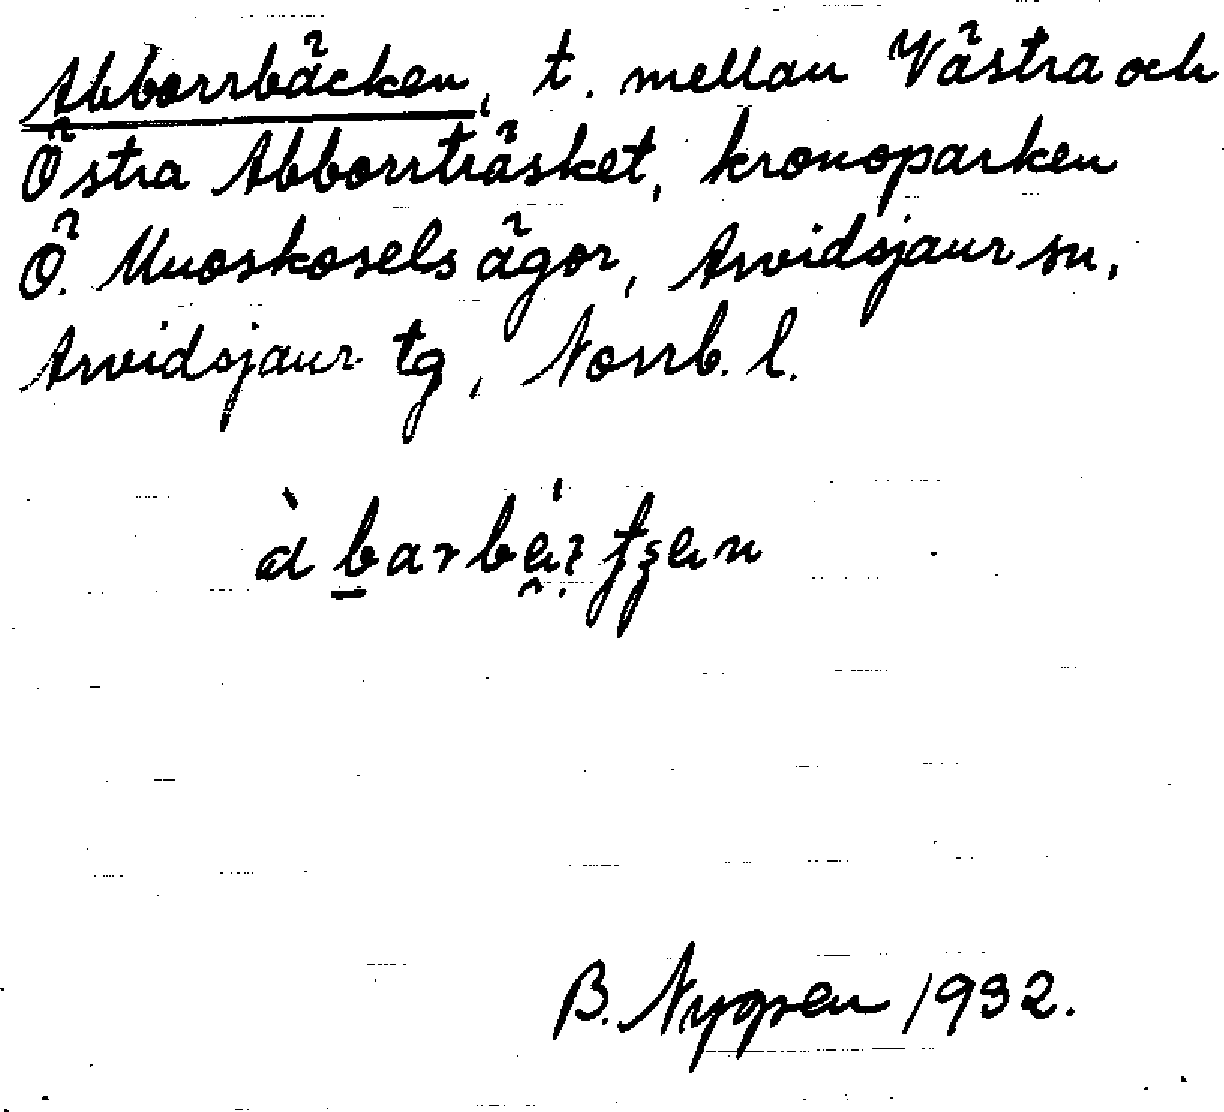 Abborrbäcken, t. mellan Västra och
Östra Abborrträsket, kronoparken
Ö. Muoskosels ägor, Arvidsjaur sn,
Arvidsjaur tg, Norrb. l.
B. Nygren 1932.